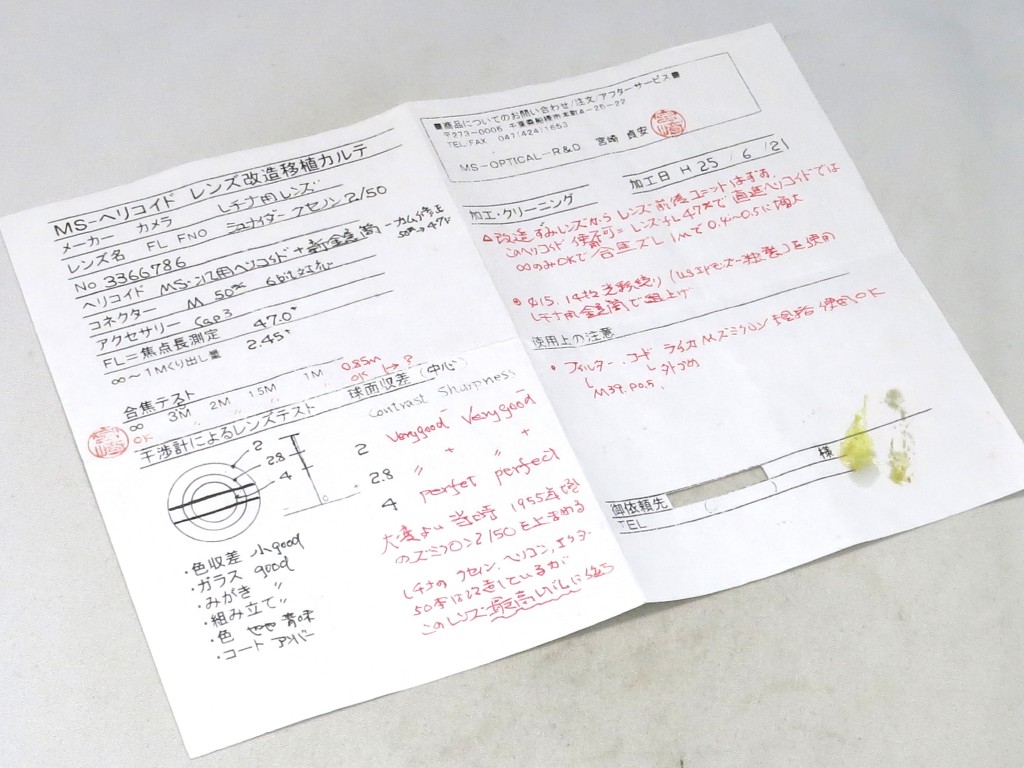 MS-ヘリコイド レンズ改造移植カルテ
メーカー カメラ レチナ用レンズ
レンズ名 FL FNO シュナイダー クセノン 2/50
No 3366786
ヘリコイド MS-ライカ用ヘリコイド+新金黄筒-カム修正
コネクター M 50% 6bit対応
アクセサリー Cap3
FL=焦点長測定 47.0+
∞～1Mくり出し量 2.45+
合焦テスト
∞ 3M 2M 1.5M 1M 0.85M
OK 〃 〃 〃 OK ?
干渉計によるレンズテスト 球面収差(中心)
Contrast Sharpness
2 Very good Very good
2.8 〃 + 〃 +
4 perfect perfect
2
2.8
4
・色収差 小good
・ガラス good
・みがき 〃
・組み立て 〃
・色 やや青味
・コート アンバー
大変よい 当時 1955年頃
のズミクロン2/50を上まわる
レチナの クセノン、ヘリゴン、エクター
50本は改造しているが
このレンズ最高レベルに入る
■商品についてのお問い合わせ/注文/アフターサービス■
〒273-0005 千葉県船橋市本町4-25-22
TEL.FAX 047(424)1653
MS-OPTICAL-R&D 宮崎 貞安
加工日 H 25 / 6 / 21
加工・クリーニング
▲改造ずみレンズから レンズ前後ユニットはずす。
このヘリコイド使用不可=レンズfL 47%で 直進ヘリコイドでは
∞のみOKで 合焦ズレ 1Mで0.4～0.5に増大
● φ15, 14枚
レチナ用 で組上げ
使用上の注意
・フィルター、フード ライカMズミクロン 使用OK
M39. P0.5.
御依頼先 様
TEL ( )